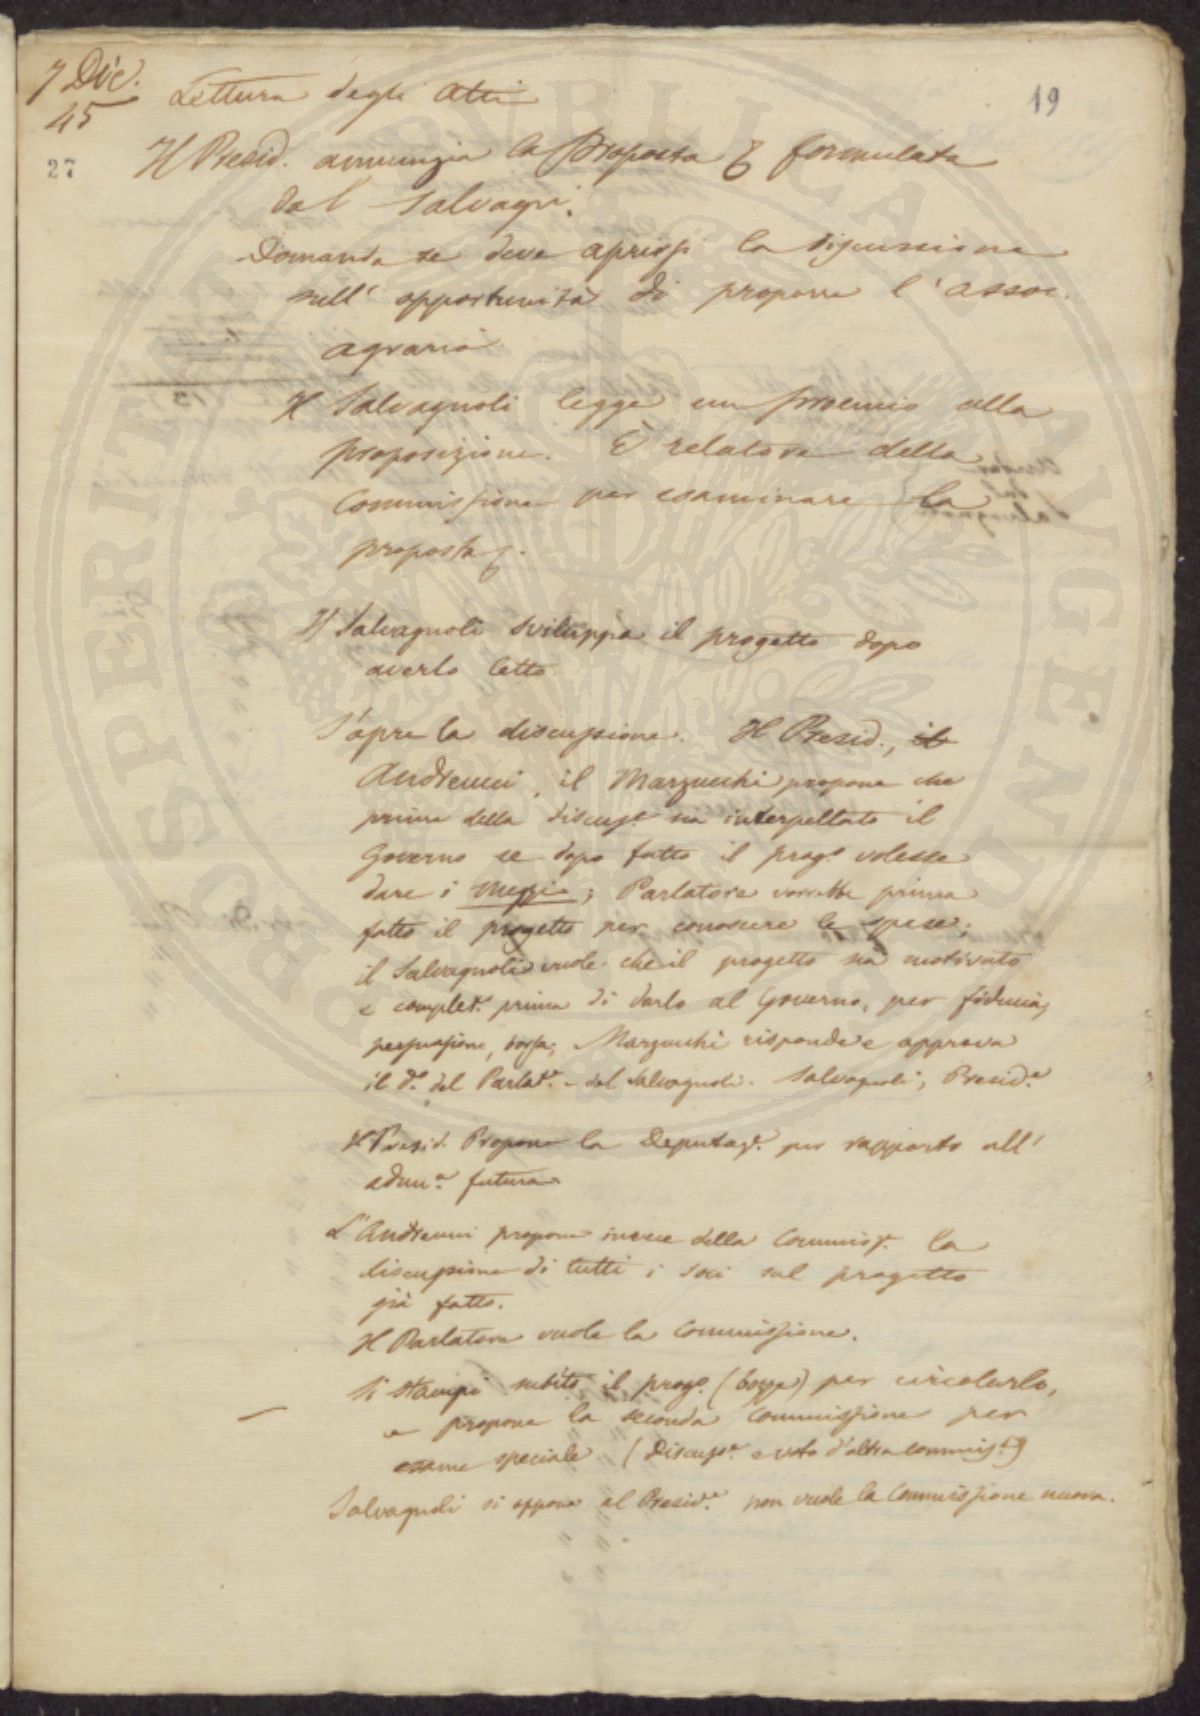 7 Dic.
45
19
27
Lettura degli Atti
Il Presid. annunzia la Proposta formulata
dal Salvagni.
Domanda se deve aprirsi la discussione
sull' opportunità di proporre l'assoc.
agraria
Il Salvagnoli legge un proemio alla
proposizione. È relatore della
Commissione per esaminare la
proposta
Il Salvagnoli sviluppa il progetto dopo
averlo letto
S'apre la discussione. Il Presid., il
Andreucci, il Marzucchi propone che
prima della discuss.e sia interpellato il
Governo se dopo fatto il prog.o volesse
dare i mezzi; Parlatore vorrebbe prima
fatto il progetto per conoscere le spese;
il Salvagnoli vuole che il progetto sia motivato
e complet.o prima di darlo al Governo, per fiducia,
persuasione, borsa; Marzucchi risponde e approva
il d.o del Parlat.e - del Salvagnoli. Salvagnoli, Presid.e
Il Presid. Propone la Deputaz.e per rapporto all'
adun.a futura
L'Andreucci propone invece della Commiss.e la
discussione di tutti i soci sul progetto
già fatto.
Il Parlatore vuole la Commissione.
Si stampi subito il prog.o (bozze) per circolarlo,
e propone la seconda Commissione per
esame speciale (Discuss.e e voto d'altra commis.e)
Salvagnoli si oppone al Presid.e non vuole la Commissione nuova.
PROSPERITATI PUBLICAE AUGENDAE